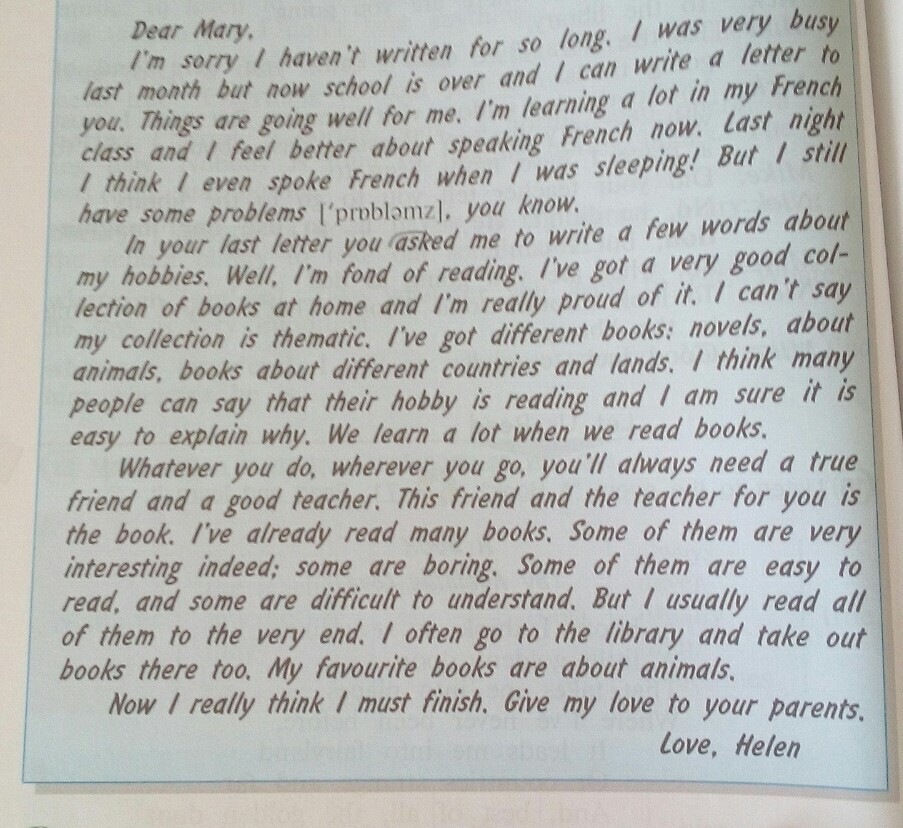 Dear Mary,
I'm sorry I haven't written for so long. I was very busy
last month but now school is over and I can write a letter to
you. Things are going well for me. I'm learning a lot in my French
class and I feel better about speaking French now. Last night
I think I even spoke French when I was sleeping! But I still
have some problems ['prɒbləmz], you know.
In your last letter you asked me to write a few words about
my hobbies. Well, I'm fond of reading. I've got a very good col-
lection of books at home and I'm really proud of it. I can't say
my collection is thematic. I've got different books: novels, about
animals, books about different countries and lands. I think many
people can say that their hobby is reading and I am sure it is
easy to explain why. We learn a lot when we read books.
Whatever you do, wherever you go, you'll always need a true
friend and a good teacher. This friend and the teacher for you is
the book. I've already read many books. Some of them are very
interesting indeed; some are boring. Some of them are easy to
read, and some are difficult to understand. But I usually read all
of them to the very end. I often go to the library and take out
books there too. My favourite books are about animals.
Now I really think I must finish. Give my love to your parents.
Love, Helen